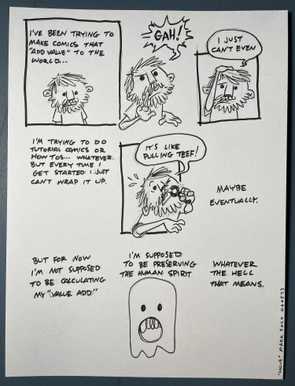 I'VE BEEN TRYING TO
MAKE COMICS THAT
"ADD VALUE" TO THE
WORLD...
GAH!
I JUST
CAN'T EVEN
I'M TRYING TO DO
TUTORIAL COMICS OR
HOW TOS... WHATEVER.
BUT EVERY TIME I
GET STARTED I JUST
CAN'T WRAP IT UP.
IT'S LIKE
PULLING TEEF!
MAYBE
EVENTUALLY.
BUT FOR NOW
I'M NOT SUPPOSED
TO BE CALCULATING
MY "VALUE ADD."
I'M SUPPOSED
TO BE PRESERVING
THE HUMAN SPIRIT
WHATEVER
THE HELL
THAT MEANS.